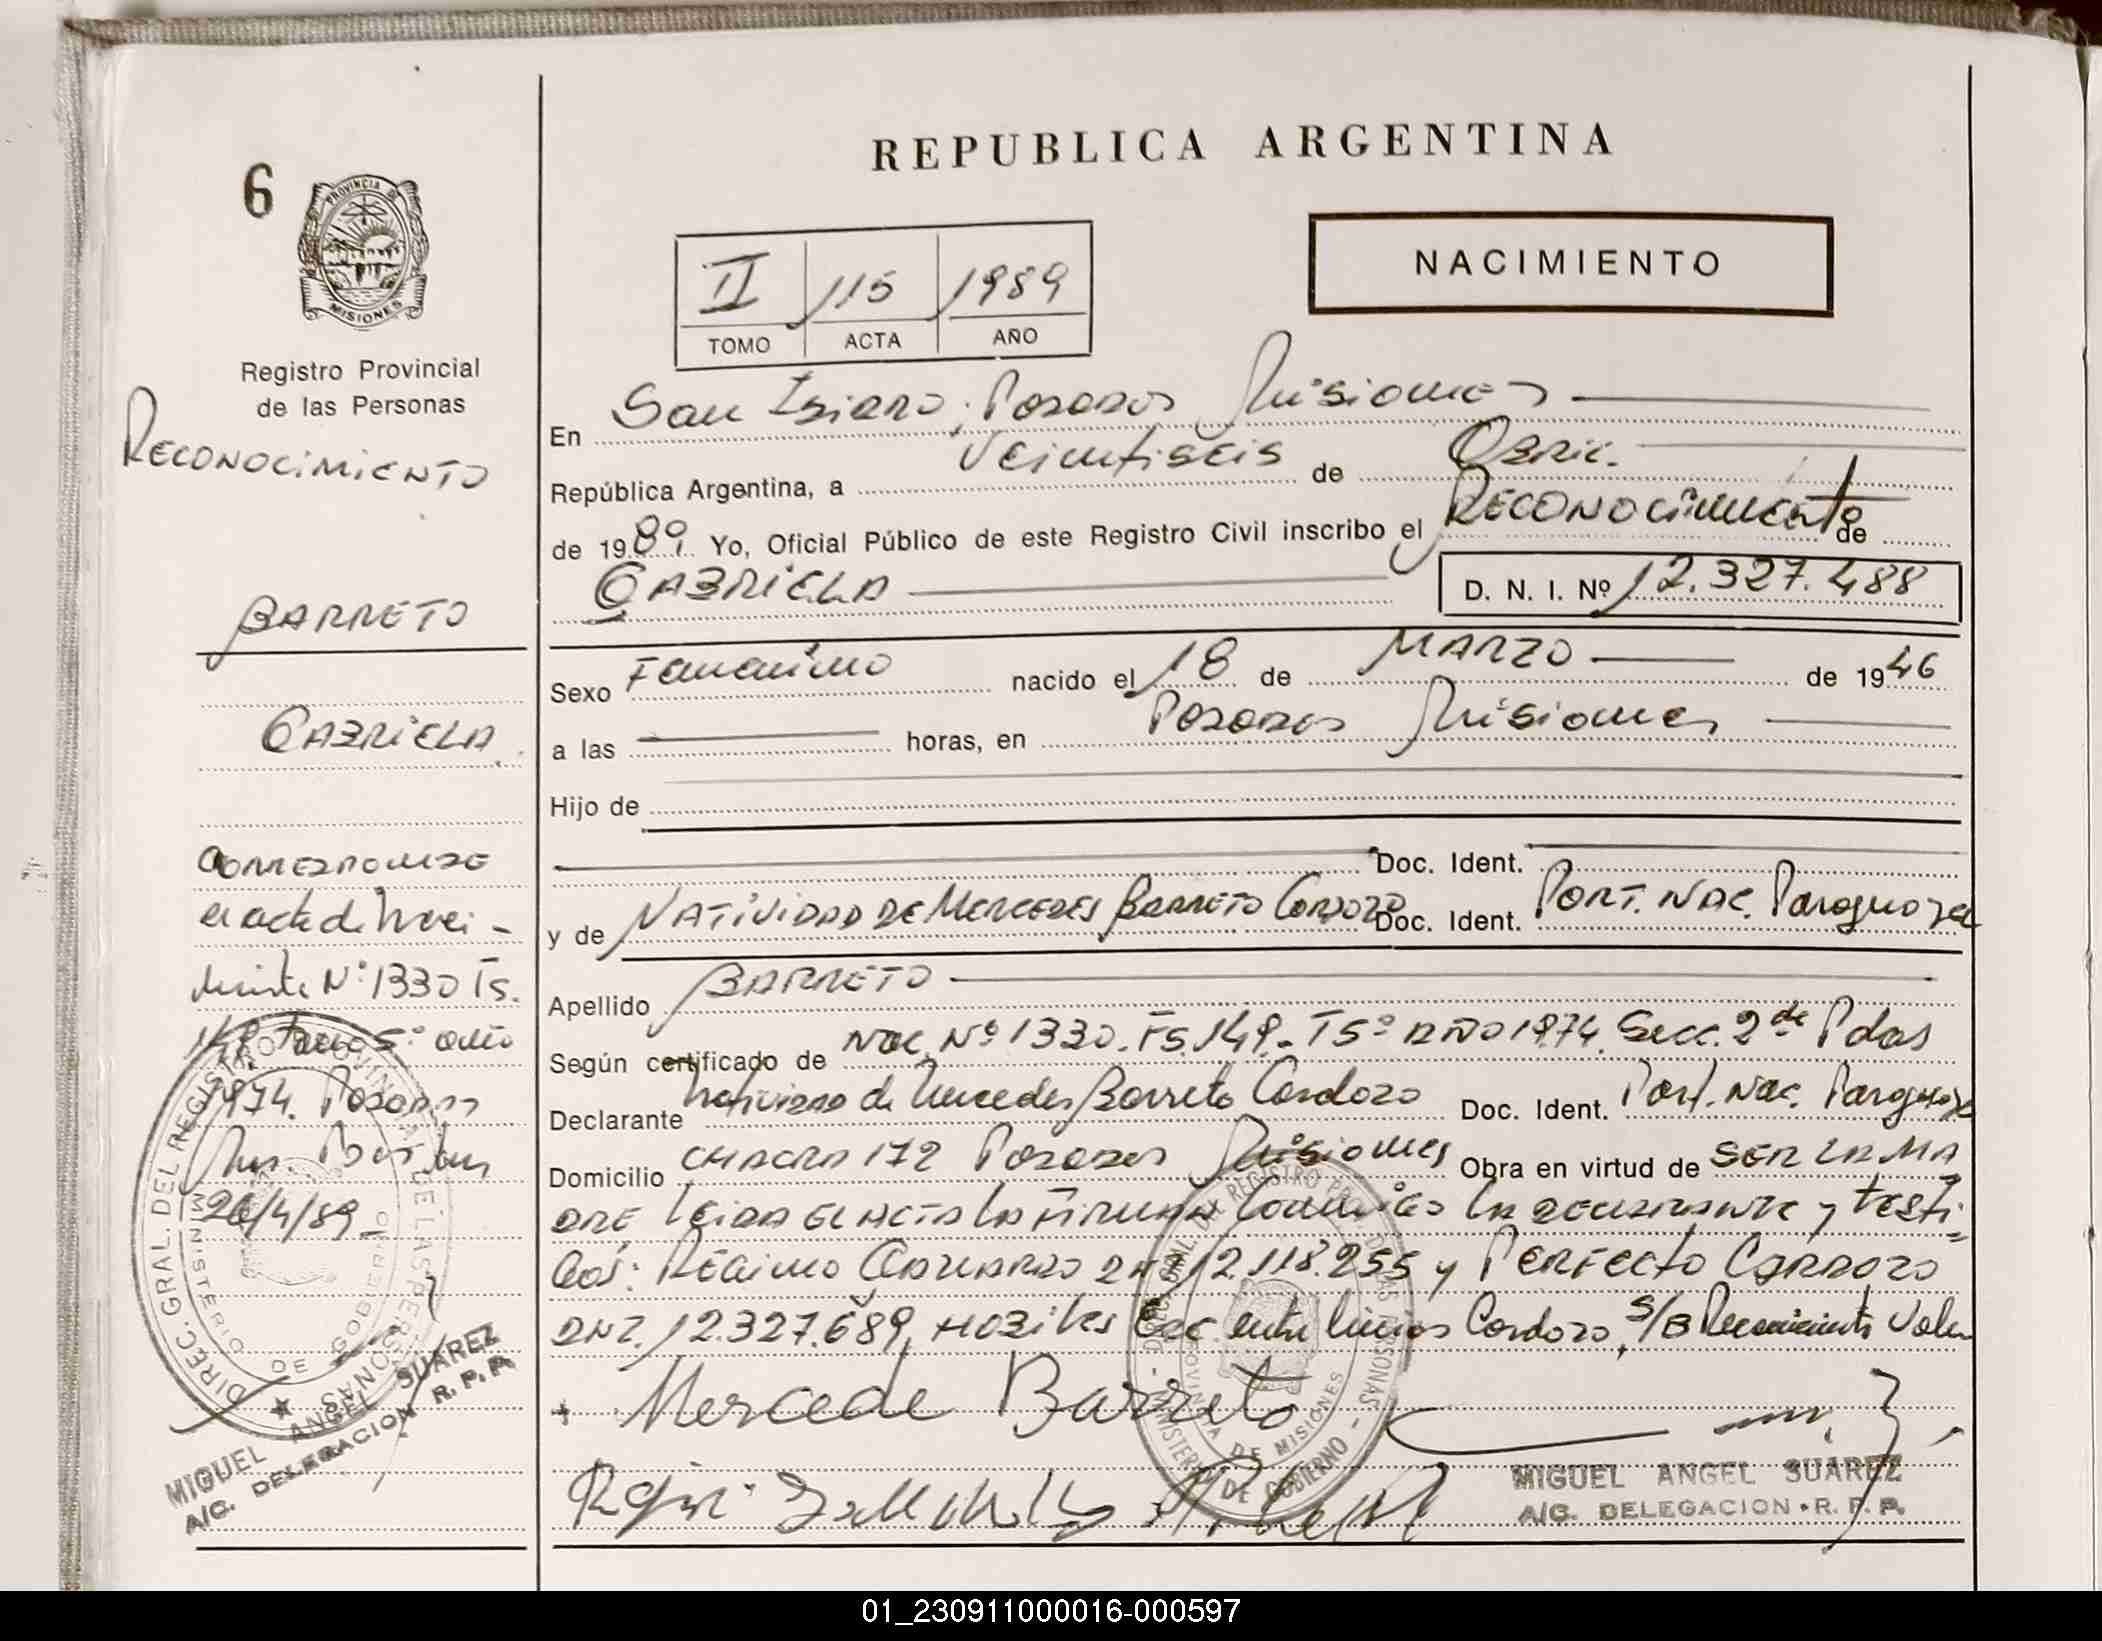 REPUBLICA ARGENTINA
6
PROVINCIA DE
MISIONES
NACIMIENTO
II 115 1989
TOMO ACTA AÑO
Registro Provincial
de las Personas
RECONOCIMIENTO
BARRETO
GABRIELA
CORRESPONDE
el acta de Naci-
miento Nº 1330 Fs.
149 Tomo 5º año
1974. Posadas
26/4/89
DIREC. GRAL. DEL REGISTRO PROVINCIAL DE LAS PERSONAS
MINISTERIO DE GOBIERNO
MIGUEL ANGEL SUÁREZ
A/C. DELEGACION R. P. P.
En San Isidro, Posadas Misiones
República Argentina, a Veintiseis de Abril
de 1989. Yo, Oficial Público de este Registro Civil inscribo el RECONOCIMIENTO de
GABRIELA D. N. I. Nº 12.327.488
Sexo Femenino nacido el 18 de MARZO de 1946
a las horas, en Posadas Misiones
Hijo de
Doc. Ident.
y de NATIVIDAD DE MERCEDES BARRETO CORDOZO Doc. Ident. PORT. NAC. Paraguaya
Apellido BARRETO
Según certificado de NAC. Nº 1330. Fs. 149. T 5º AÑO 1974. Secc. 2da Pdas
Declarante Natividad de Mercedes Barreto Cordozo Doc. Ident. Port. Nac. Paraguaya
Domicilio CHACRA 172 Posadas Misiones Obra en virtud de SER LA MA
DRE Leida EL ACTA LA FIRMAN Conmigo la declarante y testi-
gos: REGINO GALLARDO DNI 12.118.255 y PERFECTO CARDOZO
DNI. 12.327.689, HABILES entre lineas Cordozo, S/B Reconocimiento Valen
Mercede Barreto
DIREC. GRAL. DEL REGISTRO PROV. DE LAS PERSONAS
PROVINCIA DE MISIONES
MINISTERIO DE GOBIERNO
MIGUEL ANGEL SUÁREZ
A/C. DELEGACION R. P. P.
01_230911000016-000597